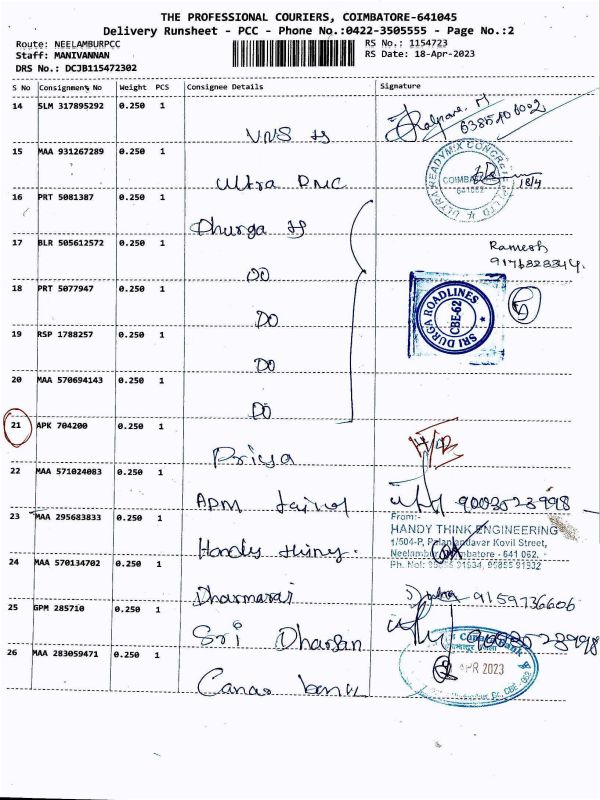 THE PROFESSIONAL COURIERS, COIMBATORE-641045
Delivery Runsheet - PCC - Phone No.:0422-3505555 - Page No.:2
Route: NEELAMBURPCC
Staff: MANIVANNAN
DRS No.: DCJB115472302
RS No.: 1154723
RS Date: 18-Apr-2023
S No Consignment No Weight PCS Consignee Details Signature
14 SLM 317895292 0.250 1
VNS
15 MAA 931267289 0.250 1
Ultra RMC
ULTRA READYMIX CONCRETE P LTD
COIMBATORE
641062
18/4
16 PRT 5081387 0.250 1
Dhurga
17 BLR 505612572 0.250 1
DO
Ramesh
18 PRT 5077947 0.250 1
DO
SRI DURGA ROADLINES
CBE-62
19 RSP 1788257 0.250 1
DO
20 MAA 570694143 0.250 1
DO
21 APK 704200 0.250 1
Priya
22 MAA 571024083 0.250 1
APM
23 MAA 295683833 0.250 1
From:-
HANDY THINK ENGINEERING
1/504-P, Palandavar Kovil Street,
Neelambur, Coimbatore - 641 062.
Handy
24 MAA 570134702 0.250 1
Dharmaraj
9159736606
25 GPM 285710 0.250 1
Sri Dharsan
26 MAA 283059471 0.250 1
Canara bank
Canara Bank
APR 2023